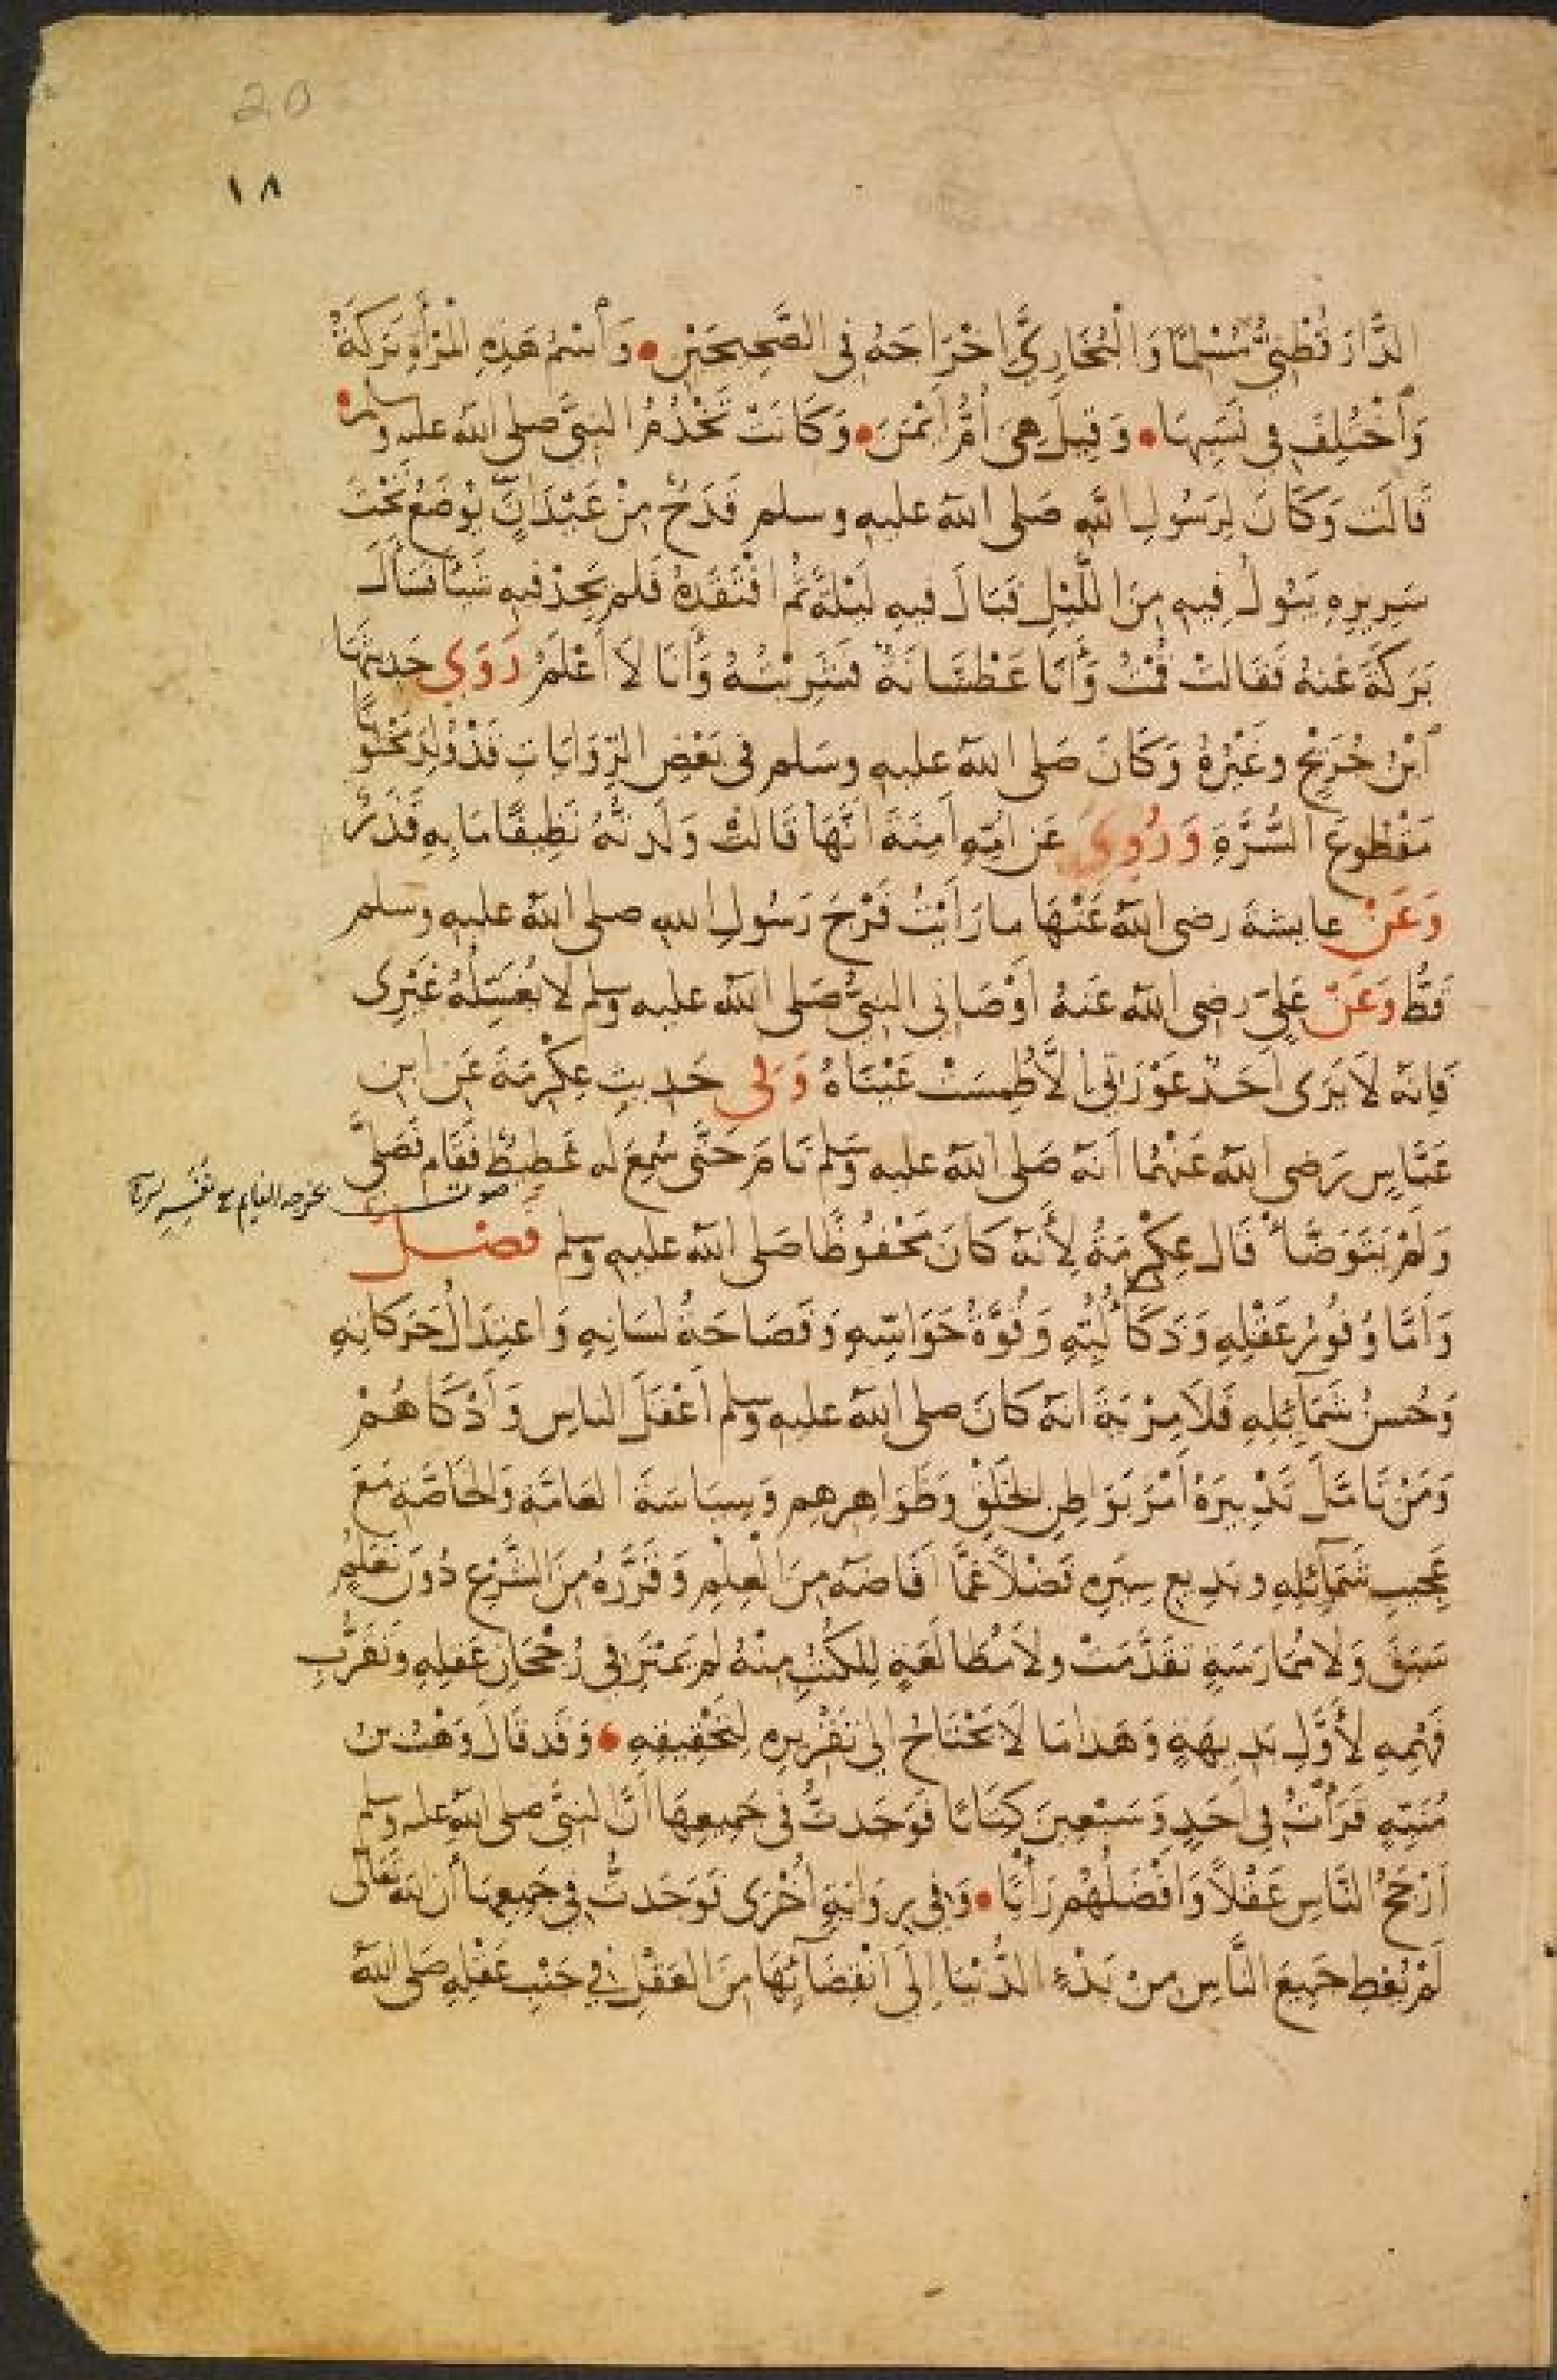 20
١٨
الدَّارَقُطْنِيُّ مُسْلِمًا وَالْبُخَارِيَّ اخْرَاجَهُ فِي الصَّحِيحَيْنِ • وَأسْمُ هَذِهِ الْمَرْأَةِ بَرَكَةُ
وَأخْتُلِفَ فِي نَسَبِهَا • وَقِيلَ هِيَ أُمُّ أَيْمَنَ • وَكَانَتْ تَخْدُمُ النبيَّ صلى الله عليه وسلم •
قَالَت وَكَانَ لِرَسُولِ اللهِ صَلى الله عليه وسلم قَدَحٌ مِنْ عَيْدَانٍ يُوضَعُ تَحْتَ
سَرِيرِهِ يَبُولُ فِيهِ مِنَ اللَّيْلِ فَبَالَ فيهِ لَيْلَةً ثُم افْتَقَدَهُ فَلم يَجِدْ فيهِ شَيْئا فسَأَلَ
بَرَكَةَ عَنهُ فَقَالتْ قُمْتُ وَأَنَا عَطْشَانَةٌ فَشَرِبْتُهُ وَأَنَا لاَ أَعْلَمُ رَوَى حَدِيثَهَا
ابْنُ جُرَيْجٍ وغَيْرُهُ وَكَانَ صَلى الله عليه وسَلم فى بَعْضِ الرِّوَايَاتِ قَدْ وُلِدَ مَخْتُونًا
مَقْطُوعَ السُّرَّةِ وَرُوِيَ عَن امِّهِ آمِنَةَ انَّهَا قَالتْ وَلَدتُّهُ نَظِيفًا مَا بِهِ قَذَرٌ
وَعَنْ عايشةَ رضى الله عَنْهَا ما رَأَيْتُ فَرْجَ رَسُولِ اللهِ صلى الله عليه وسلم
قَطُّ وَعَنْ عَلِيّ رضى الله عَنهُ أَوْصَاني النبيُّ صَلى الله عليه وسلم لا يُغَسِّلُهُ غَيْرِى
فَإِنه لاَ يَرَى أَحَدٌ عَوْرَتِى إلاَّ طُمِسَتْ عَيْنَاهُ وَفي حَديثِ عِكْرِمَةَ عَن ابن
عَبَّاسٍ رَضى الله عَنْهُمَا أنه صَلى الله عليه وسَلم نَامَ حَتَّى سُمِعَ له غَطِيطٌ فَقَام فَصَلَّى
صوت يخرجه النايم مع نَفَسِهِ
وَلَمْ يَتَوَضَّأْ قَالَ عِكْرِمَةُ لِأَنه كَانَ مَحْفُوظًا صَلى الله عليه وسلم فَصْلٌ
وَأَمَّا وُفُورُ عَقْلِهِ وَذَكَاءُ لُبِّهِ وَقُوَّةُ حَوَاسِّهِ وَفَصَاحَةُ لسَانِهِ وَاعتِدَالُ حَرَكَاتِهِ
وَحُسنُ شَمَآئِلِهِ فَلاَ مِرْيَةَ انه كَانَ صلى الله عليه وسلم أَعْقَلَ الناسِ وَأَذْكَاهُمْ
وَمَنْ تَامَّلَ تَدْبِيرَهُ أَمْرَ بَوَاطِنِ الخَلْقِ وَظَوَاهِرِهِم وَسِيَاسَةَ العَامَّةِ وَالخَاصَّةِ مَعَ
عَجِيبِ شَمَآئِلِهِ وبَدِيعِ سِيَرِهِ فَضْلاً عَمَّا افَاضَهُ مِنَ الْعِلْمِ وَقَرَّرَهُ مِنَ الشَّرْعِ دُونَ تَعَلُّمٍ
سَبَقَ وَلا مُمَارَسَةٍ تَقَدَّمَتْ ولاَ مُطَالَعَةٍ لِلكُتُبِ مِنْهُ لم يَمْتَرِ في رُجْحَانِ عَقلِهِ وَثقُوبِ
فَهْمِهِ لأَوَّلِ بَدِيهَةٍ وَهَذا مَا لاَ يَحْتَاجُ إلى تَقْرِيرِهِ لِتَحْقِيقِهِ • وَقَد قَالَ وَهْبُ بنُ
مُنَبِّهٍ قَرَأْتُ فِي أَحَدٍ وَسَبْعِينَ كِتَابًا فَوَجَدتُّ فى جَمِيعِهَا أنَّ النبيَّ صلى الله عليه وسلم
أَرْجَحُ النَّاسِ عَقْلاً وَافْضَلُهُم رَأْيًا • وَفِي رِوَايَةٍ أُخْرَى فَوَجَدتُّ فِي جَمِيعِهَا أن الله تَعَالى
لَمْ يُعْطِ جَمِيعَ النَّاسِ مِنْ بَدْءِ الدُّنْيَا إِلَى انْقِضَآئِهَا مِنَ العَقْلِ فِي جَنْبِ عَقْلِهِ صَلى الله